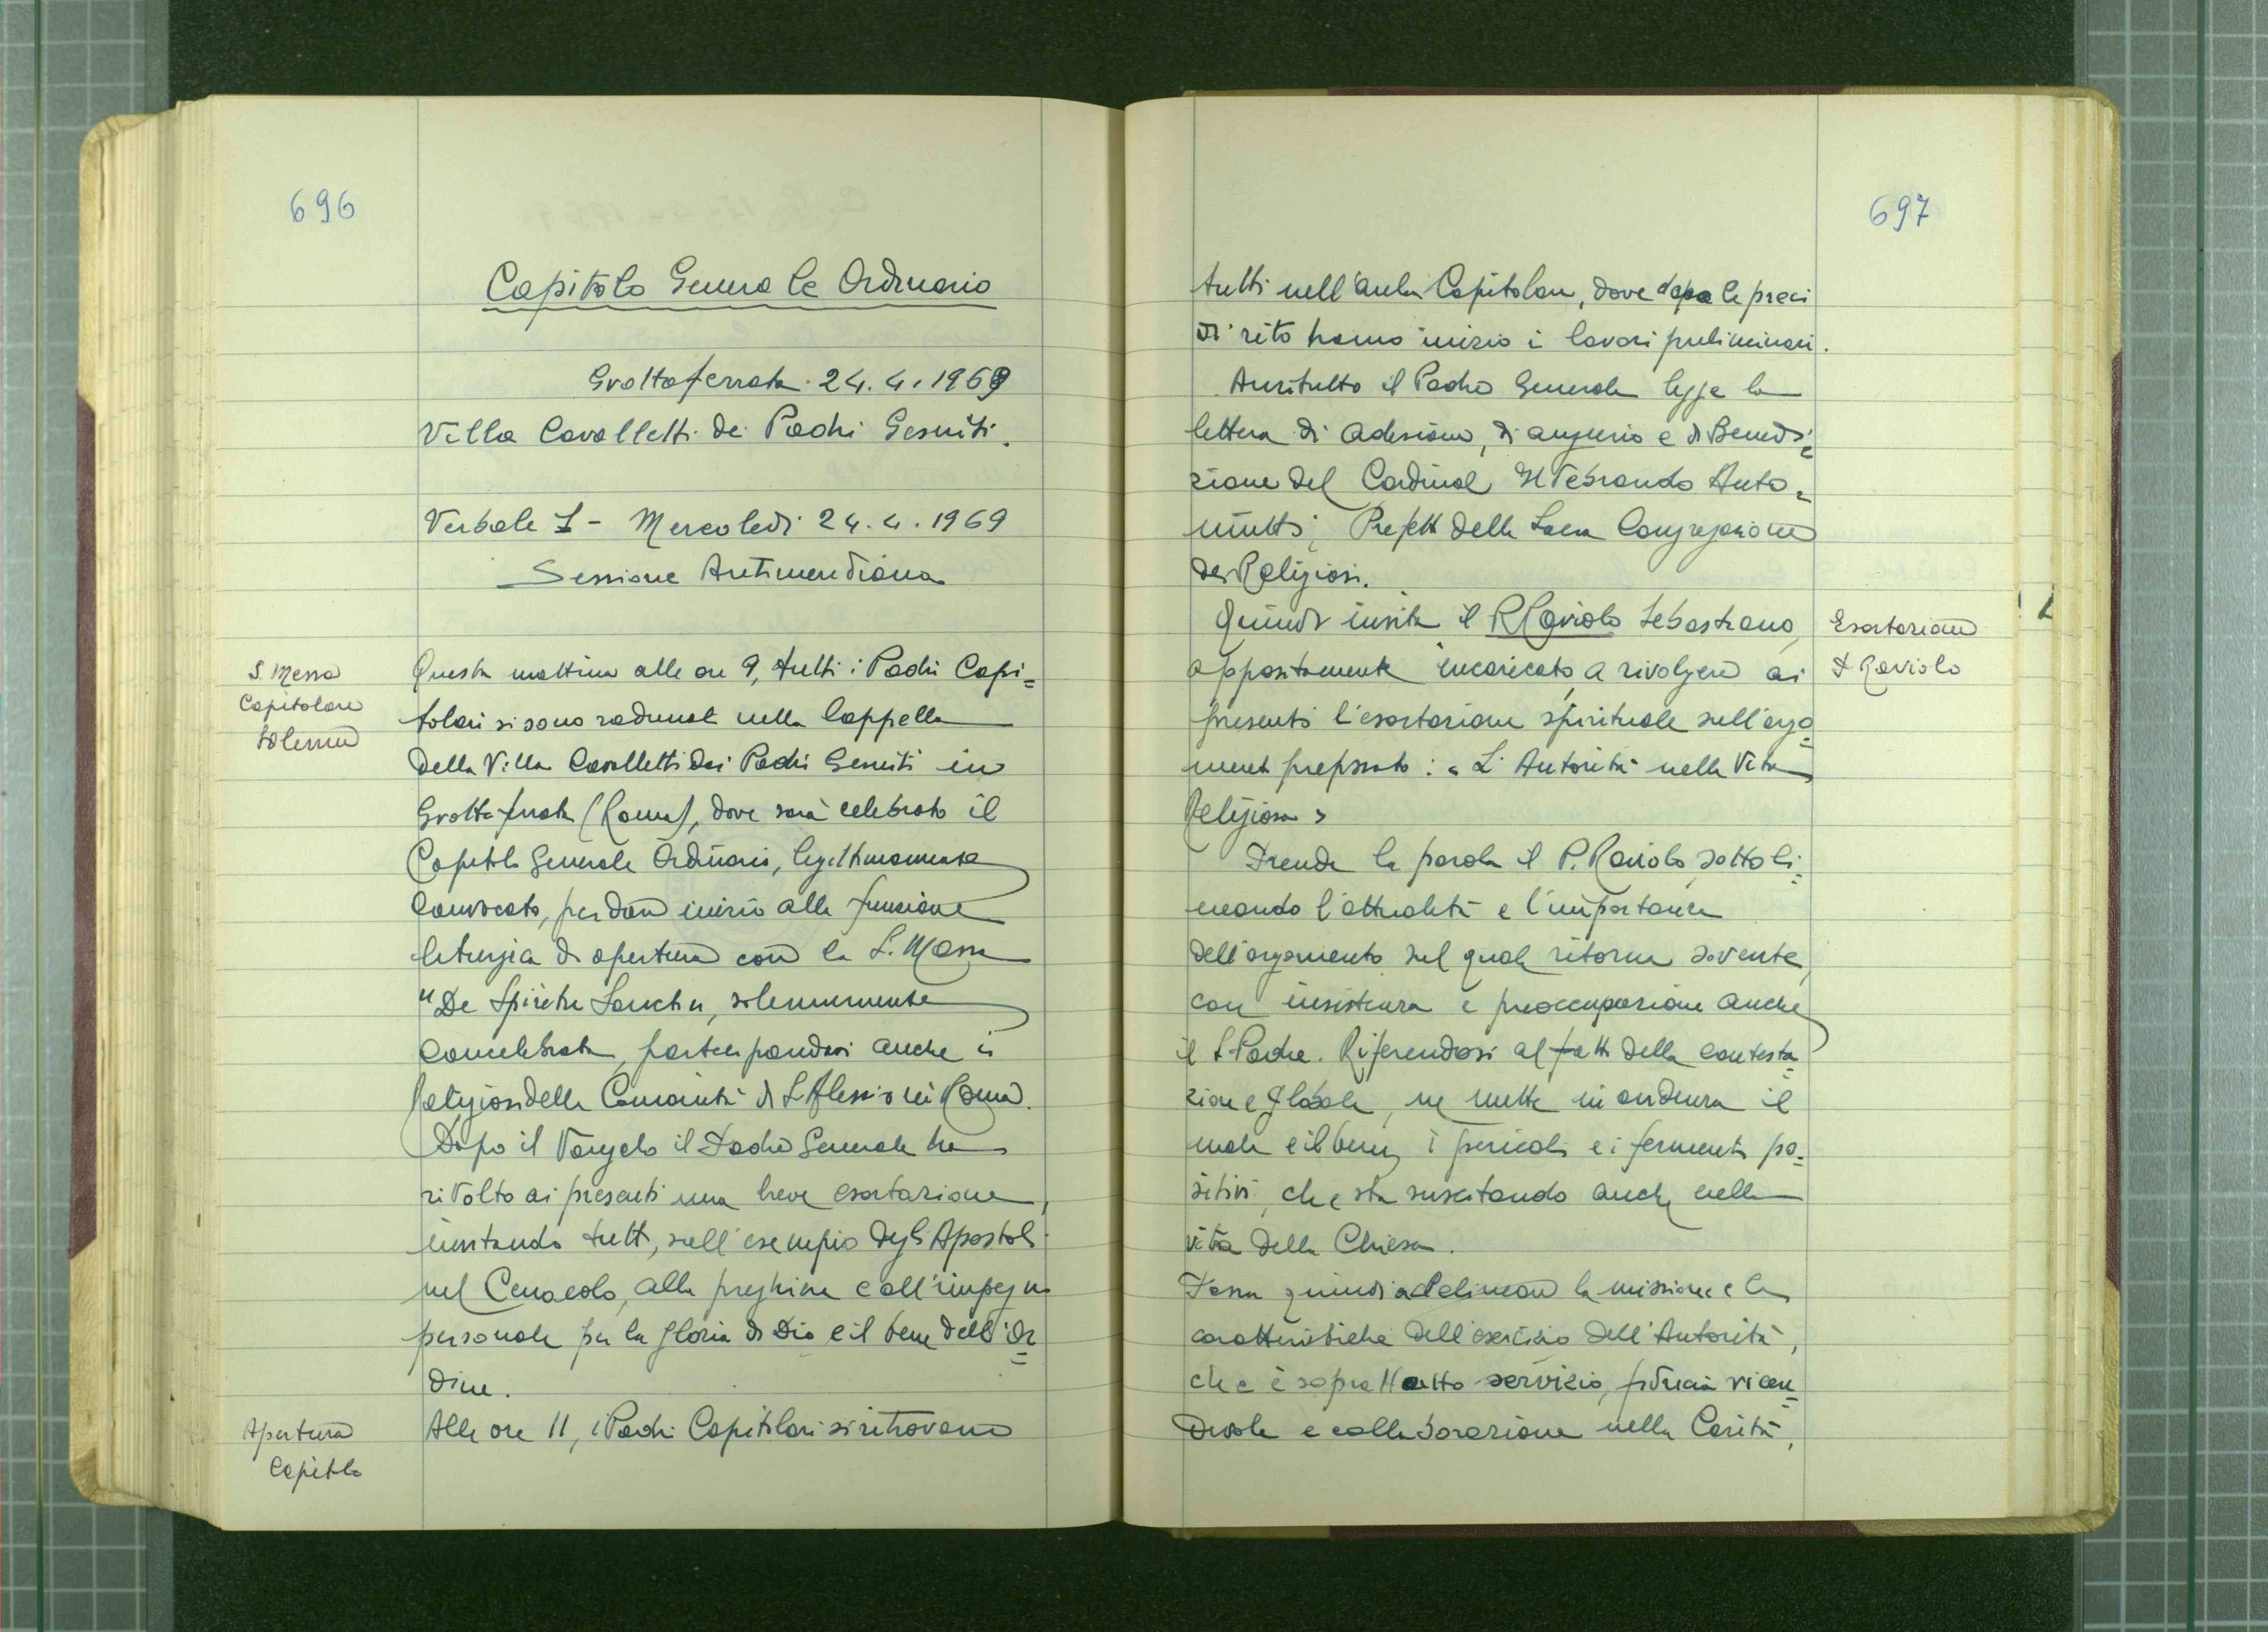 696
Capitolo Generale Ordinario
Grottaferrata 24.4.1969
Villa Cavalletti dei Padri Gesuiti.
Verbale 1 - Mercoledì 24.4.1969
Sessione Antimeridiana
S. Messa
Capitolare
solenne
Questa mattina alle ore 9, tutti i Padri Capi=
tolari si sono radunati nella Cappella
della Villa Cavalletti dei Padri Gesuiti in
Grottaferrata (Roma), dove sarà celebrato il
Capitolo Generale Ordinario, legittimamente
convocato, per dare inizio alla funzione
liturgica di apertura con la S. Messa
"De Spiritu Sanctu", solennemente
concelebrata, partecipandovi anche i
Religiosi della Comunità di S. Alessio in Roma.
Dopo il Vangelo il Padre Generale ha
rivolto ai presenti una breve esortazione,
invitando tutti, sull'esempio degli Apostoli
nel Cenacolo, alla preghiera e all'impegno
personale per la gloria di Dio e il bene dell'Or=
dine.
Apertura
Capitolo
Alle ore 11, i Padri Capitolari si ritrovano
697
tutti nell'aula Capitolare, dove dopo le preci
di rito hanno inizio i lavori preliminari.
Anzitutto il Padre Generale legge la
lettera di adesione, di augurio e di Benedi=
zione del Cardinal Ildebrando Anto=
niutti, Prefetto della Sacra Congregazione
dei Religiosi.
Quindi invita il P. Raviolo Sebastiano,
appositamente incaricato, a rivolgere ai
presenti l'esortazione spirituale sull'argo=
mento preparato: "L'Autorità nella Vita
Religiosa"
Esortazione
P. Raviolo
Prende la parola il P. Raviolo, sottoli=
neando l'attualità e l'importanza
dell'argomento sul quale ritorna sovente,
con insistenza e preoccupazione anche
il S. Padre. Riferendosi al fatto della contesta=
zione globale, ne mette in evidenza il
male e il bene, i pericoli e i fermenti po=
sitivi, che sta suscitando anche nella
vita della Chiesa.
Passa quindi a delineare la missione e le
caratteristiche dell'esercizio dell'Autorità,
che è soprattutto servizio, fiducia vicen=
devole e collaborazione nella Carità,